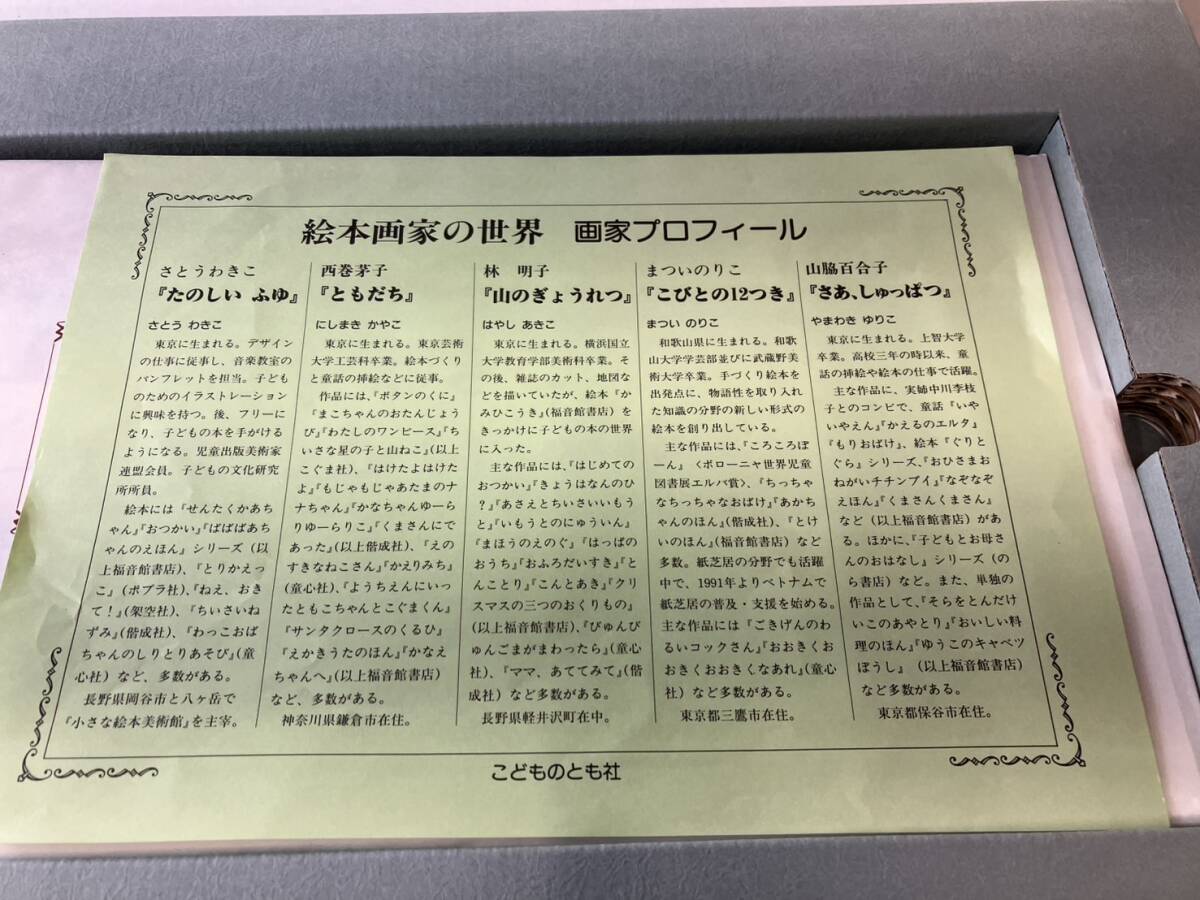 絵本画家の世界 画家プロフィール
さとうわきこ
『たのしい ふゆ』
さとう わきこ
東京に生まれる。デザイン
の仕事に従事し、音楽教室の
パンフレットを担当。子ども
のためのイラストレーション
に興味を持つ。後、フリーに
なり、子どもの本を手がける
ようになる。児童出版美術家
連盟会員。子どもの文化研究
所所員。
絵本には『せんたくかあち
ゃん』『おつかい』『ばばばあち
ゃんのえほん』シリーズ（以
上福音館書店）、『とりかえっ
こ』（ポプラ社）、『ねえ、おき
て！』（架空社）、『ちいさいね
ずみ』（偕成社）、『わっこおば
ちゃんのしりとりあそび』（童
心社）など、多数がある。
長野県岡谷市と八ヶ岳で
『小さな絵本美術館』を主宰。
西巻茅子
『ともだち』
にしまき かやこ
東京に生まれる。東京芸術
大学工芸科卒業。絵本づくり
と童話の挿絵などに従事。
作品には、『ボタンのくに』
『まこちゃんのおたんじょう
び』『わたしのワンピース』『ち
いさな星の子と山ねこ』（以上
こぐま社）、『はけたよはけた
よ』『もじゃもじゃあたまのナ
ナちゃん』『かなちゃんゆーら
りゆーらりこ』『くまさんにで
あった』（以上偕成社）、『えの
すきなねこさん』『かえりみち』
（童心社）、『ようちえんにいっ
たともこちゃんとこぐまくん』
『サンタクロースのくるひ』
『えかきうたのほん』『かなえ
ちゃんへ』（以上福音館書店）
など、多数がある。
神奈川県鎌倉市在住。
林 明子
『山のぎょうれつ』
はやし あきこ
東京に生まれる。横浜国立
大学教育学部美術科卒業。そ
の後、雑誌のカット、地図な
どを描いていたが、絵本『か
みひこうき』（福音館書店）を
きっかけに子どもの本の世界
に入った。
主な作品には、『はじめての
おつかい』『きょうはなんのひ
？』『あさえとちいさいいもう
と』『いもうとのにゅういん』
『まほうのえのぐ』『はっぱの
おうち』『おふろだいすき』『と
んことり』『こんとあき』『クリ
スマスの三つのおくりもの』
（以上福音館書店）、『びゅんび
ゅんごまがまわったら』（童心
社）、『ママ、あててみて』（偕
成社）など多数がある。
長野県軽井沢町在中。
まついのりこ
『こびとの12つき』
まつい のりこ
和歌山県に生まれる。和歌
山大学学芸部並びに武蔵野美
術大学卒業。手づくり絵本を
出発点に、物語性を取り入れ
た知識の分野の新しい形式の
絵本を創り出している。
主な作品には、『ころころぽ
ーん』〈ボローニャ世界児童
図書展エルバ賞〉、『ちっちゃ
なちっちゃなおばけ』『あかち
ゃんのほん』（偕成社）、『とけ
いのほん』（福音館書店）など
多数。紙芝居の分野でも活躍
中で、1991年よりベトナムで
紙芝居の普及・支援を始める。
主な作品には『ごきげんのわ
るいコックさん』『おおきくお
おきくおおきくなあれ』（童心
社）など多数がある。
東京都三鷹市在住。
山脇百合子
『さあ、しゅっぱつ』
やまわき ゆりこ
東京に生まれる。上智大学
卒業。高校三年の時以来、童
話の挿絵や絵本の仕事で活躍。
主な作品に、実姉中川李枝
子とのコンビで、童話『いや
いやえん』『かえるのエルタ』
『もりおばけ』、絵本『ぐりと
ぐら』シリーズ、『おひさまお
ねがいチチンプイ』『なぞなぞ
えほん』『くまさんくまさん』
など（以上福音館書店）があ
る。ほかに、『子どもとお母さ
んのおはなし』シリーズ（の
ら書店）など。また、単独の
作品として、『そらをとんだけ
いこのあやとり』『おいしい料
理のほん』『ゆうこのキャベツ
ぼうし』（以上福音館書店）
など多数がある。
東京都保谷市在住。
こどものとも社